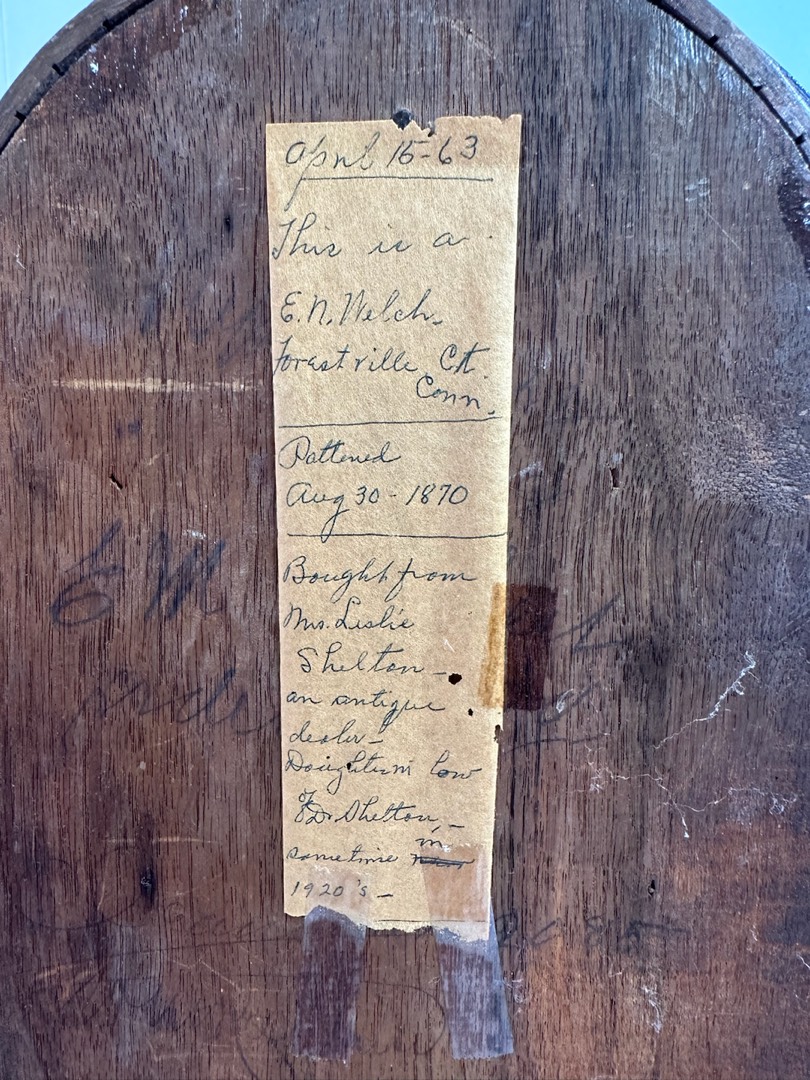 April 15-63
This is a
E. N. Welch.
Forestville Ct
Conn.
Pattened
Aug 30 - 1870
Bought from
Mrs. Leslie
Shelton -
an antique
dealer -
Daughterin low
of Dr Shelton, -
sometime in
1920's -
E M